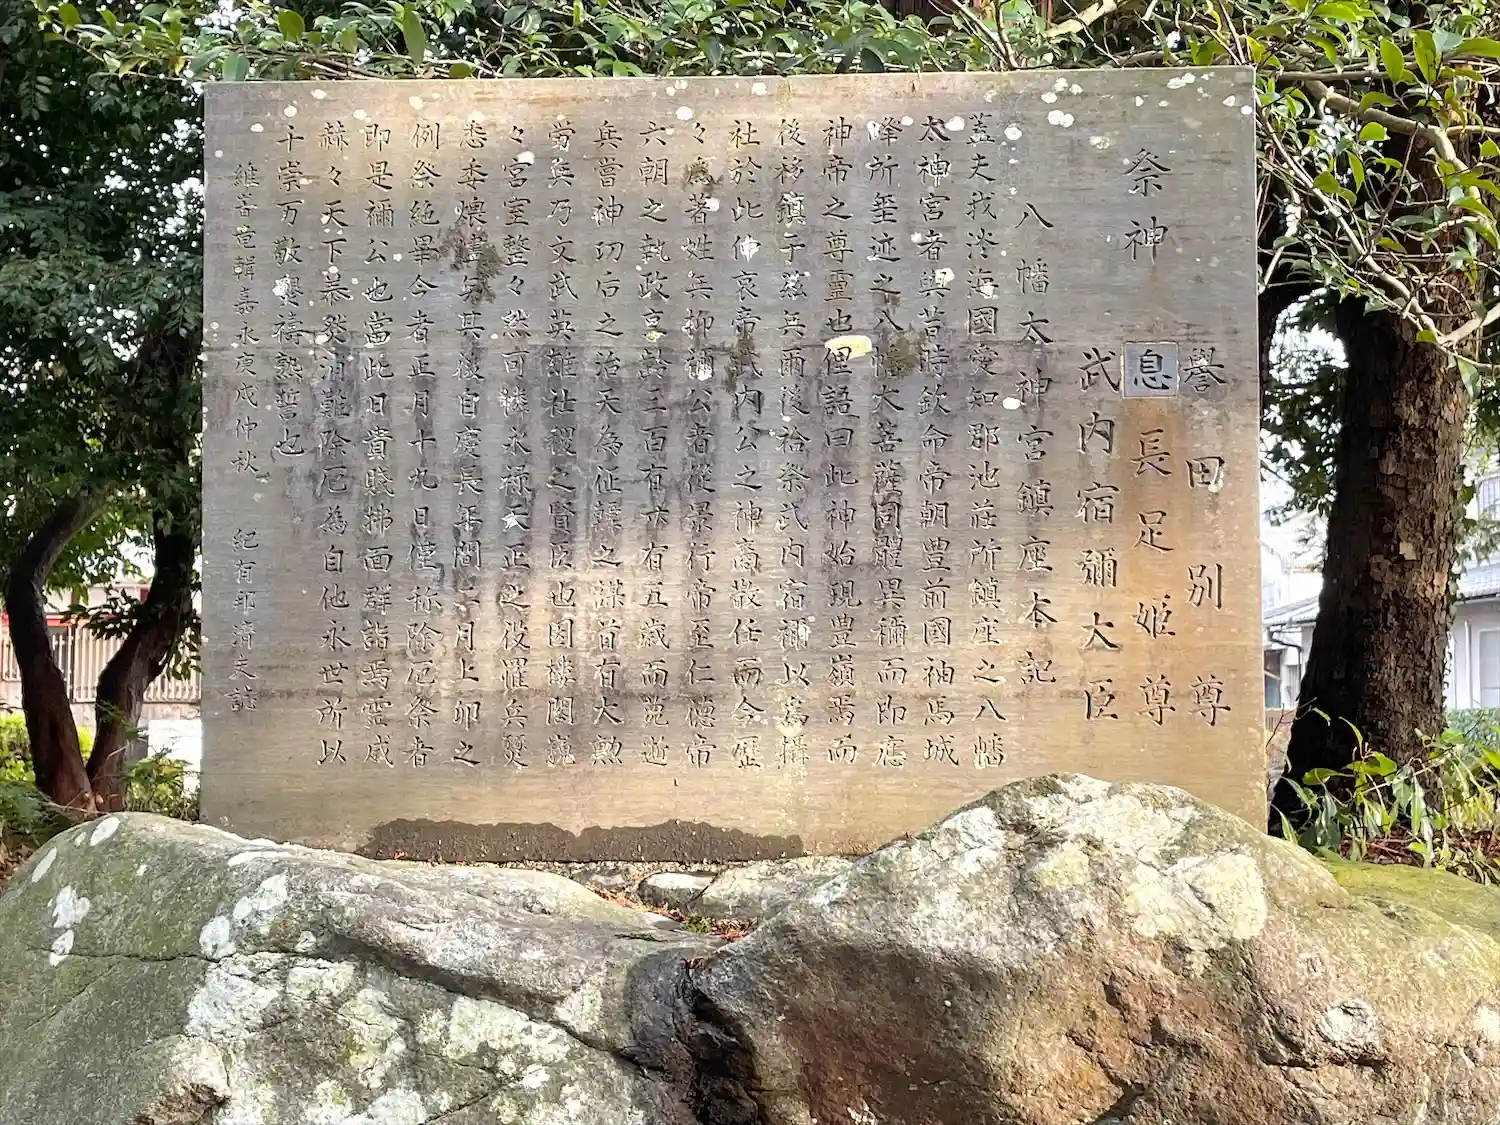 祭神
譽田別尊
息長足姫尊
武内宿禰大臣
八幡太神宮鎮座本記
蓋夫我淡海國愛知郡池莊所鎮座之八幡
太神宮者與昔時欽命帝朝豊前國神馬城
峰所垂迹之八幡大菩薩同體異稱而即應
神帝之尊靈也俚語曰此神始現豊嶺焉而
後移鎮于兹矣爾後拾祭武内宿禰以為攝
社於此仲哀帝武内公之神裔散任而今歴
々為著姓矣抑禰公者從景行帝至仁德帝
六朝之執政享齢三百有亦有五歳而薨逝
兵當神功后之治天為征韓之謀首有大勲
労矣乃文武英雄社稷之賢臣也因樓閣巍
々宮室整々然可憐永禄天正之役罹兵燹
悉委懐燼矣其後自慶長年間二月上卯之
例祭絶畢今者正月十九日僅称除厄祭者
即是禰公也當此日貴賤拂面群詣焉霊威
赫々天下暴癸消難除厄為自他永世所以
千崇万敬禱熟誓也
維音嘉永庚戌仲秋 紀有邦濟夫誌